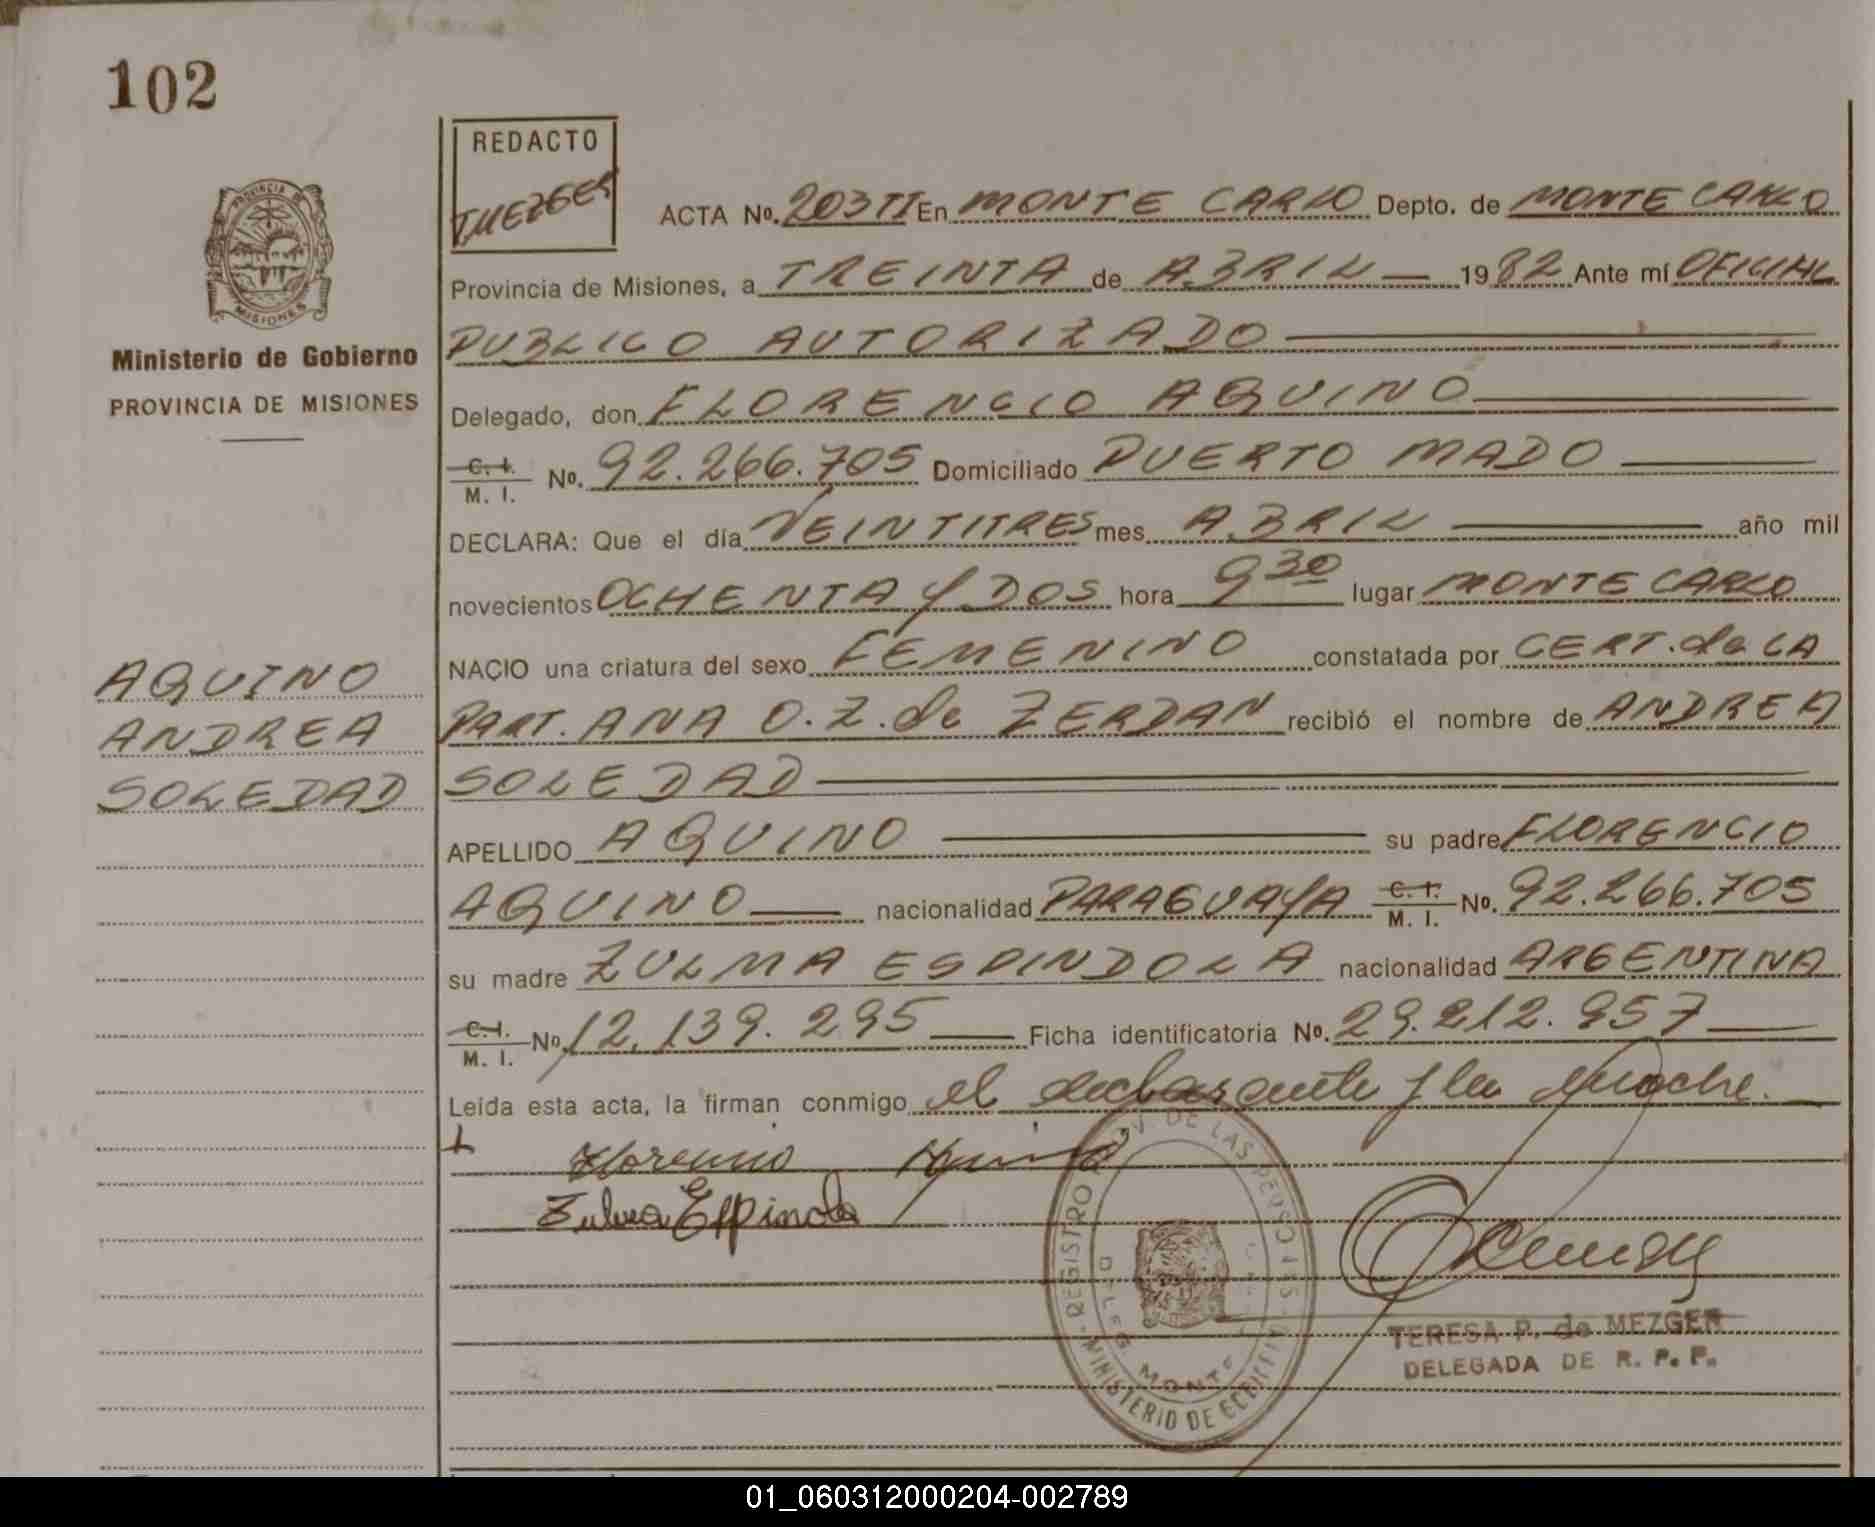 102
REDACTO
T.MEZGER
PROVINCIA DE
MISIONES
Ministerio de Gobierno
PROVINCIA DE MISIONES
ACTA No. 203 TI En MONTE CARLO Depto. de MONTE CARLO
Provincia de Misiones, a TREINTA de ABRIL 1982 Ante mí OFICIAL
PUBLICO AUTORIZADO
Delegado, don FLORENCIO AQUINO
C. I. M. I. No. 92.266.705 Domiciliado PUERTO MADO
DECLARA: Que el día VEINTITRES mes ABRIL año mil
novecientos OCHENTA y DOS hora 9 30 lugar MONTE CARLO
NACIO una criatura del sexo FEMENINO constatada por CERT. de LA
PART. ANA O. Z. de ZERDAN recibió el nombre de ANDREA
SOLEDAD
AQUINO
ANDREA
SOLEDAD
APELLIDO AQUINO su padre FLORENCIO
AQUINO nacionalidad PARAGUAYA C. I. M. I. No. 92.266.705
su madre ZULMA ESPINDOLA nacionalidad ARGENTINA
C. I. M. I. No. 12.139.295 Ficha identificatoria No. 29.212.957
Leída esta acta, la firman conmigo el declarante y la madre.
Florencio Aquino
Zulma Espinola
REGISTRO PROV. DE LAS PERSONAS
MINISTERIO DE
DELEG MONTE
TERESA P. de MEZGER
DELEGADA DE R. P. P.
01_060312000204-002789